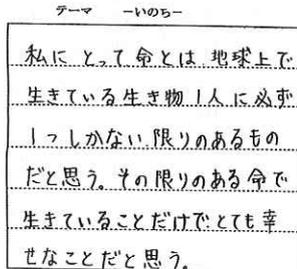 テーマ －いのち－
私にとって命とは地球上で
生きている生き物1人に必ず
1つしかない限りのあるもの
だと思う。その限りのある命で
生きていることだけでとても幸
せなことだと思う。